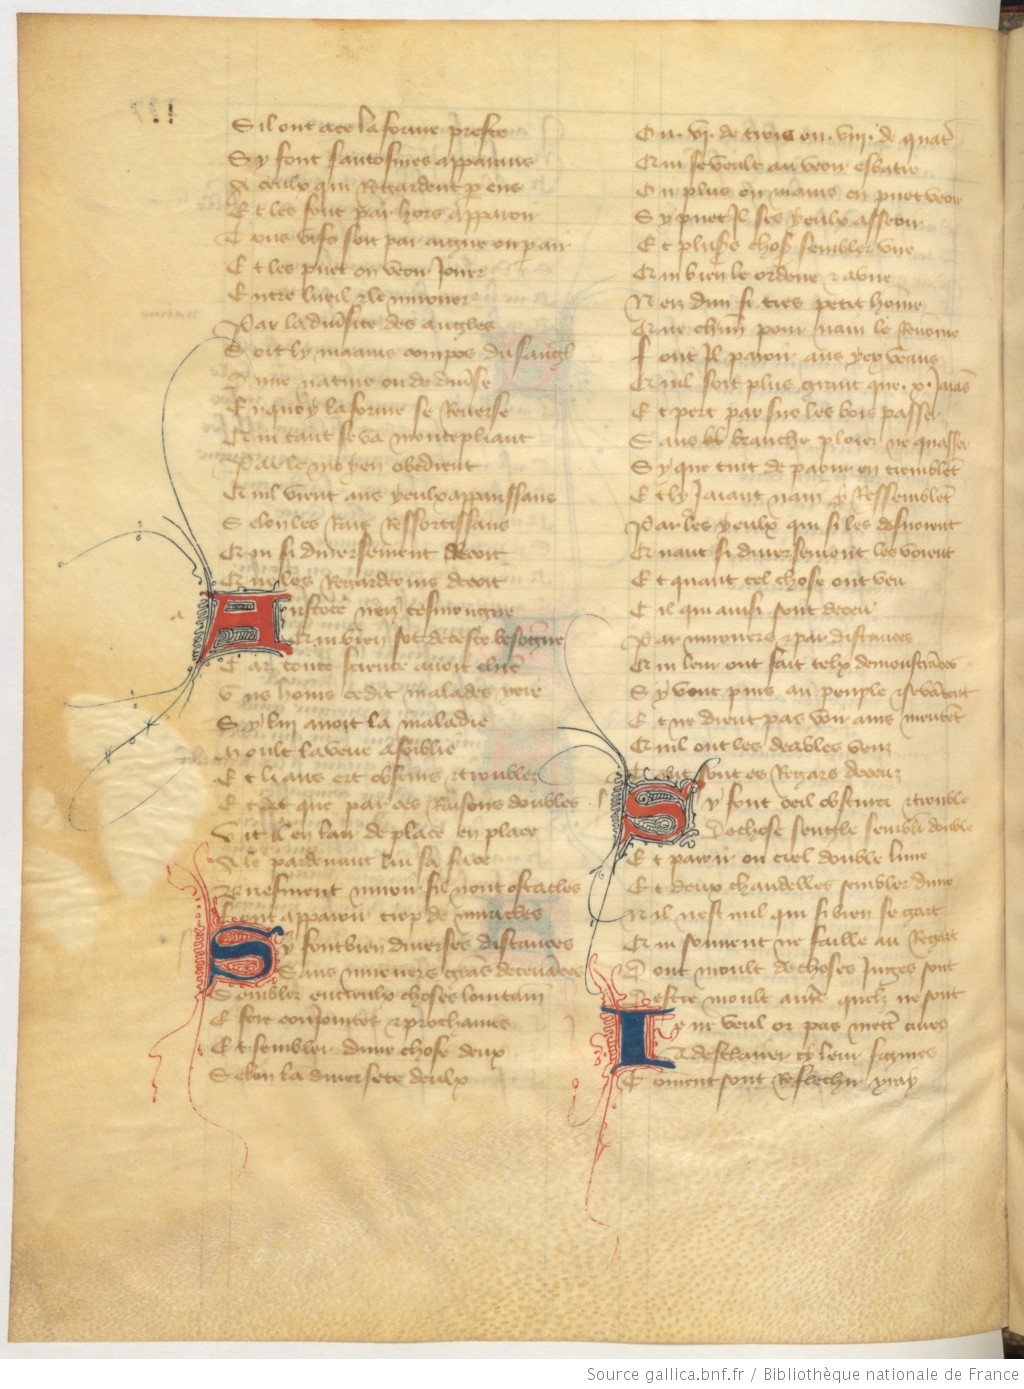 S il ont ace la forme preste
S y font fantosmes apparans
A ceulx qui Regardent p ens
E t les font par hors apparoir
T ous vifs soit par aigue ou p air
E t les puet on veoir Jouer
E ntre lueil z le mironer
P ar la diusite des angles
S oit ly maains compos ou sangl
D une nature ou de diuse
E n quoy la forme se Reuerse
Q ui tant se va montepliant
P ar le moyen obedient
Q uil vient aus yeulx apparissans
S elon les Raiz Ressortissans
Q ui si diuersement decoit
Q ue les Regardeours decoit
A ristote neiz tesmoigne
Q ui bien sot de ceste besoigne
C ar toute science auoit chie
V ns homs ce dit malades yere
S y luy auoit la maladie
M oult la veue afoiblie
E t li airs ert obscurs z troubles
E t dit que par ces Raisons doubles
V it il en lair de place en place
A ler pardeuant lui sa face
B riefment miroir sil nont ostacles
F ont apparoir trop de miracles
S y font bien diuerses distances
S ans miroers grans deceuances
S embler entreulx choses loingtain
E stre conjointes z prochaines
E t sembler dune chose deux
S elon la diuersete deulx
O u .vi. de trois ou .viii. de quat
Q ui se veult au veoir esbatre
O u plus ou mains en puet veoir
S y puet Il ses yeulx asseoir
E t pluss chos sembler vne
Q ui bien le ordene z aune
N eiz dun si tres petit home
Q ue chun pour nain le Renome
F ont Il paroir aus yex veans
Q uil soit plus grant que .x. Jaians
E t pert par sus les bois passer
S ans branche ploier ne quasser
S y que tuit de paour en tremblet
E t ly Jaiant nain y Ressemblet
P ar les yeulx qui si les desuoient
Q uant si diuersement les voient
E t quant tel chose ont veu
C il qui ainsi sont deceu
P ar miroers z par distances
Q ui leur ont fait telx demonstrances
S y vont puis au peuple z se vantent
E t ne dient pas voir ains mentent
Q uil ont les deables veuz
T ant sont es Regars deceuz
S y font oeil obscurci z trouble
D e chose sengle sembler double
E t paroir ou ciel double lune
E t deux chandelles sembler dune
N il nest nul qui si bien se gart
Q ui souuent ne faille au Regart
D ont moult de choses Juges sont
D estre moult autr quelz ne sont
I e ne veul or pas mettr cures
E n desclairer cy leur figures
C oment sont Reflechir y ray